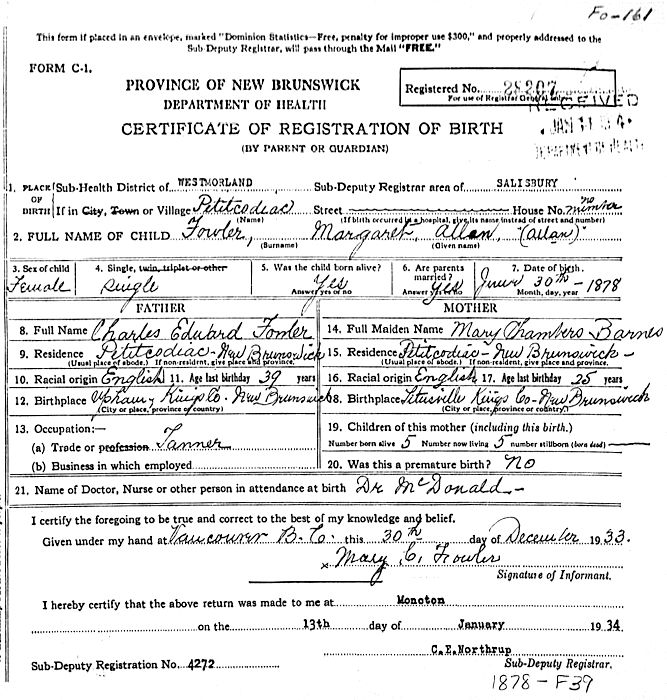 Fo-161
This form if placed in an envelope, marked "Dominion Statistics—Free, penalty for improper use $300," and properly addressed to the
Sub-Deputy Registrar, will pass through the Mail "FREE."
FORM C-1.
PROVINCE OF NEW BRUNSWICK
DEPARTMENT OF HEALTH
CERTIFICATE OF REGISTRATION OF BIRTH
(BY PARENT OR GUARDIAN)
Registered No. 28207
For use of Registrar General only
RECEIVED
JAN
DEPARTMENT OF HEALTH
1. PLACE OF BIRTH Sub-Health District of WESTMORLAND Sub-Deputy Registrar area of SALISBURY
If in City, Town or Village Petitcodiac Street House No. no number
(Name) (If birth occurred in a hospital, give its name instead of street and number)
2. FULL NAME OF CHILD Fowler, Margaret, Allan, (Allan)
(Surname) (Given name)
3. Sex of child 4. Single, twin, triplet or other 5. Was the child born alive? 6. Are parents married? 7. Date of birth.
Female Single Yes Yes 30th - 1878
Answer yes or no Answer yes or no Month, day, year
FATHER MOTHER
8. Full Name Charles Edward Fowler 14. Full Maiden Name Mary Chambers Barnes
9. Residence Petitcodiac - New Brunswick 15. Residence Petitcodiac - New Brunswick -
(Usual place of abode.) If non-resident, give place and province. (Usual place of abode.) If non-resident, give place and province.
10. Racial origin English 11. Age last birthday 39 years 16. Racial origin English 17. Age last birthday 25 years
12. Birthplace Upham, Kings Co. New Brunswick 18. Birthplace Kings Co - New Brunswick
(City or place, province or country) (City or place, province or country)
13. Occupation:— 19. Children of this mother (including this birth.)
(a) Trade or profession Tanner Number born alive 5 Number now living 5 number stillborn (born dead)
(b) Business in which employed 20. Was this a premature birth? No
21. Name of Doctor, Nurse or other person in attendance at birth Dr McDonald -
I certify the foregoing to be true and correct to the best of my knowledge and belief.
Given under my hand at Vancouver B.C. this 30th day of December 1933.
x Mary C. Fowler
Signature of Informant.
I hereby certify that the above return was made to me at Moncton
on the 13th day of January 1934
C.E.Northrup
Sub-Deputy Registration No. 4272 Sub-Deputy Registrar.
1878 - F39